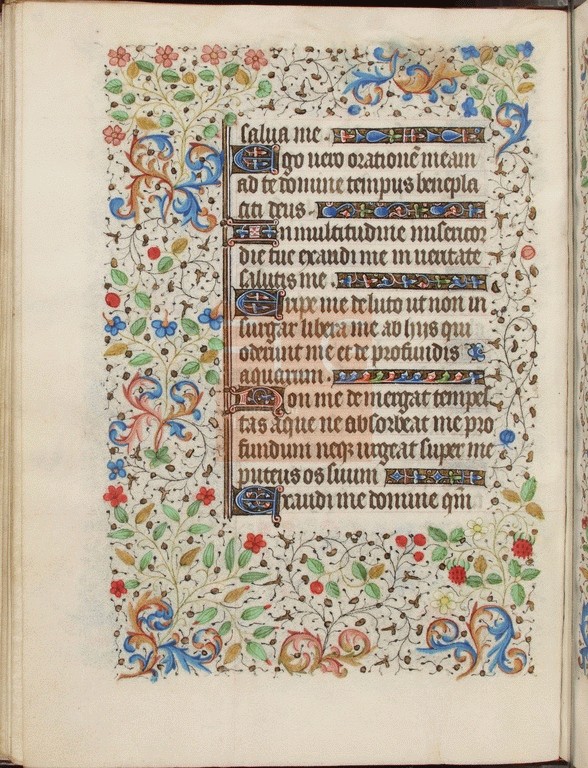 salua me
Ego uero orationē meam
ad te domine tempus benepla
citi deus
In multitudine misericor
die tue exaudi me in ueritate
salutis me
Eripe me de luto ut non in
fingar libera me ab hiis qui
oderunt me et de profundis
aquarum
Non me demergat tempes
tas aque ne absorbeat me pro
fundum neqz urgeat super me
puteus os suum
Exaudi me domine qm̄